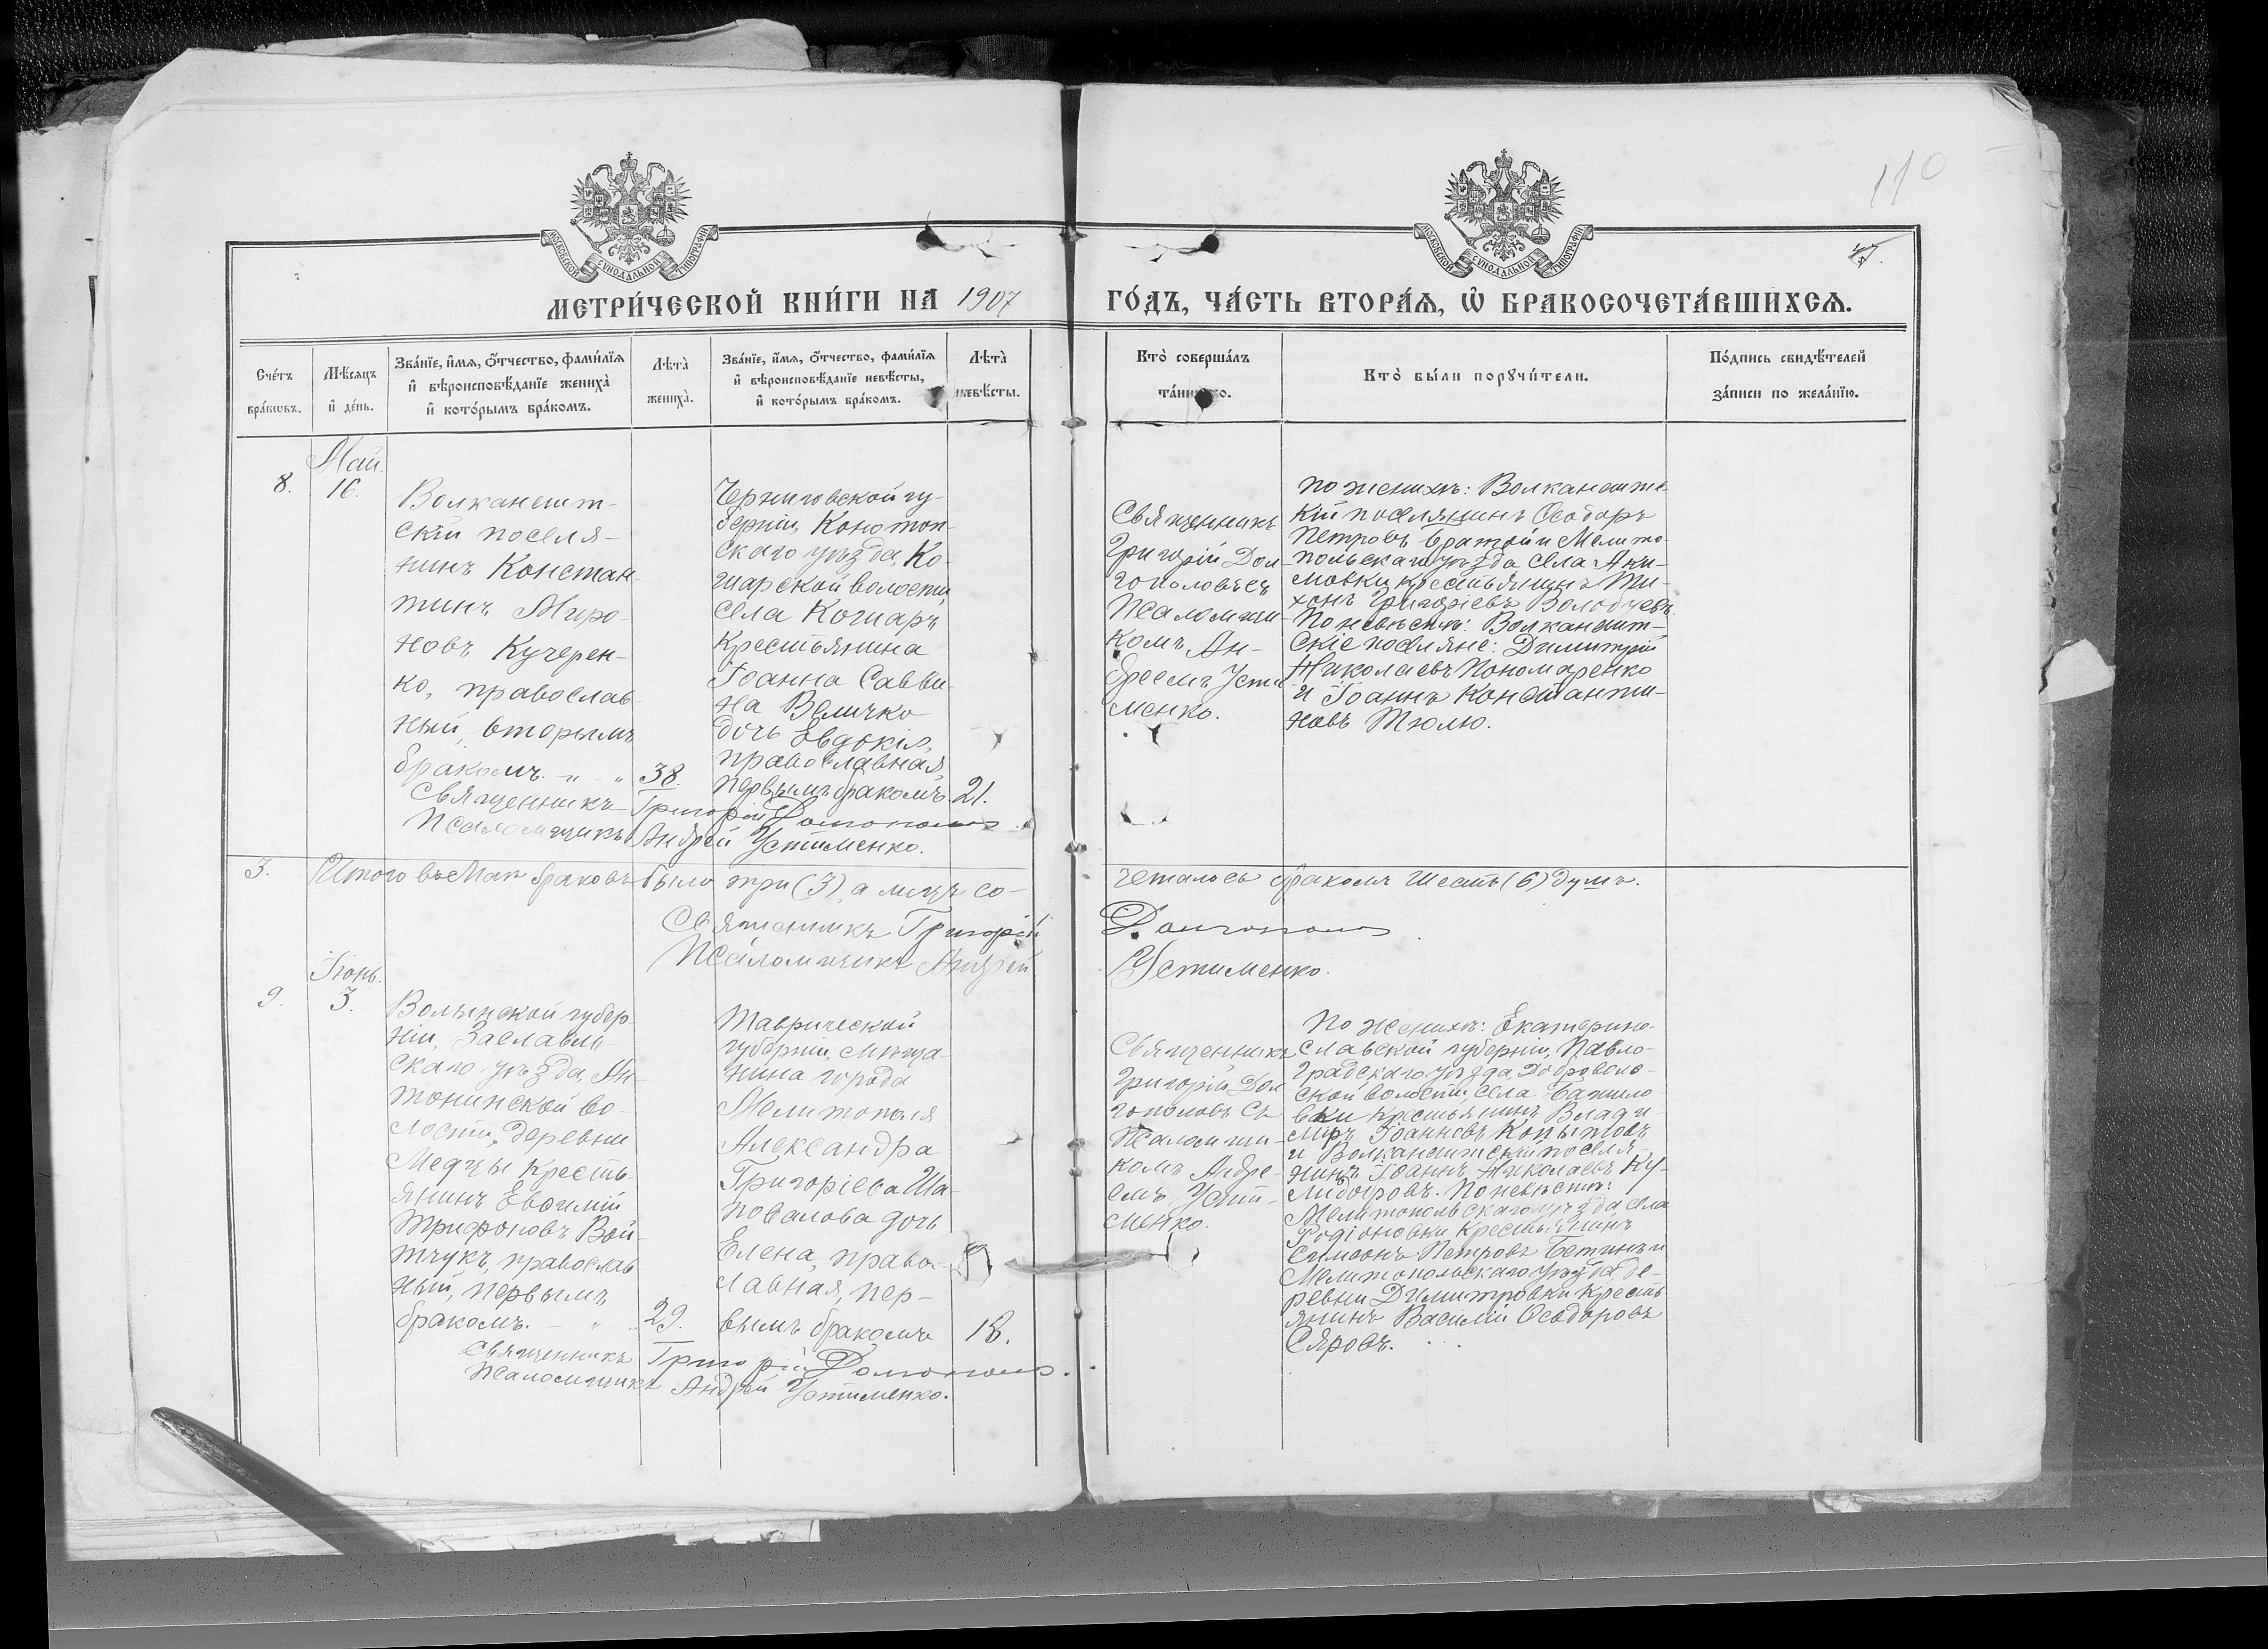 110
МОСКОВСКОЙ СѴНОДАЛЬНОЙ ТИПОГРАФІИ
МОСКОВСКОЙ СѴНОДАЛЬНОЙ ТИПОГРАФІИ
МЕТРИ́ЧЕСКОЙ КНИ́ГИ НА 1907
ГО́ДЪ, ЧА́СТЬ ВТОРА́Я, Ѽ БРАКОСОЧЕТА́ВШИХСЯ.
Сче́тъ бра́кѡвъ.
Мѣ́сяцъ и҆ де́нь.
Зва́нїе, и҆́мя, ѻ҆́тчество, фами́лїя
и҆ вѣроисповѣ́данїе жениха̀
и҆ кото́рымъ бра́комъ.
Лѣта̀ жениха̀.
Зва́нїе, и҆́мя, ѻ҆́тчество, фами́лїя
и҆ вѣроисповѣ́данїе невѣ́сты,
и҆ кото́рымъ бра́комъ.
Лѣта̀ невѣ́сты.
Кто̀ соверша́лъ
та́инство.
Кто̀ бы́ли порꙋчи́тели.
По́дпись свидѣ́телей
за́писи по жела́нїю.
8.
Май.
16.
Волканешт-
скій поселя-
нинъ Констан-
тинъ Миро-
новъ Кучерен-
ко, православ-
ный, вторымъ
бракомъ. - " - "
38.
Черниговской гу-
берніи, Конотоп-
скаго уѣзда, Ко-
шарской волости,
села Кошаръ
крестьянина
Іоанна Савви-
на Величко
дочь Евдокія,
православная,
первымъ бракомъ.
21.
Священникъ Григорій Долгополовъ
Псаломщикъ Андрей Устименко.
Священникъ
Григорій Дол-
гополовъ съ
Псаломщи-
комъ Ан-
дреемъ Усти-
менко.
По женихѣ: Волканештс-
кій поселянинъ Ѳеодоръ
Петровъ Братой и Мелито-
польскаго уѣзда села Аки-
мовки крестьянинъ Ти-
хонъ Григорьевъ
По невѣстѣ: Волканешт-
скіе поселяне: Димитрій
Николаевъ Пономаренко
и Іоаннъ Константи-
новъ Тюлю.
3.
Итого въ Маѣ браковъ было три (3), а лицъ со-
четалось бракомъ шесть (6) душъ.
Священникъ Григорій Долгополовъ
Псаломщикъ Андрей Устименко.
Іюнь.
9.
3.
Волынской губер-
ніи, Заславль-
скаго уѣзда, Ан-
тонинской во-
лости, деревни
Медцы кресть-
янинъ Евѳимій
Трифоновъ Вой-
тчукъ, православ-
ный, первымъ
бракомъ. - " -
29.
Таврической
губерніи, мѣща-
нина города
Мелитополя
Александра
Григоріева Ша-
повалова дочь
Елена, право-
славная, пер-
вымъ бракомъ
18.
Священникъ Григорій Долгополовъ.
Псаломщикъ Андрей Устименко.
Священникъ
Григорій Дол-
гополовъ съ
Псаломщи-
комъ Андре-
емъ Усти-
менко.
По женихѣ: Екатерино-
славской губерніи, Павло-
градскаго уѣзда, Доброволь-
ской волости, села
крестьянинъ Влади-
міръ Іоанновъ Копытовъ
и Волканештскій поселя-
нинъ Іоаннъ Николаевъ Ку-
По невѣстѣ:
Мелитопольскаго уѣзда села
Родіоновки крестьянинъ
Симеонъ Петровъ Бетинъ и
Мелитопольскаго уѣзда, де-
ревни Димитровки кресть-
янинъ Василій Ѳеодоровъ
Сяровъ.